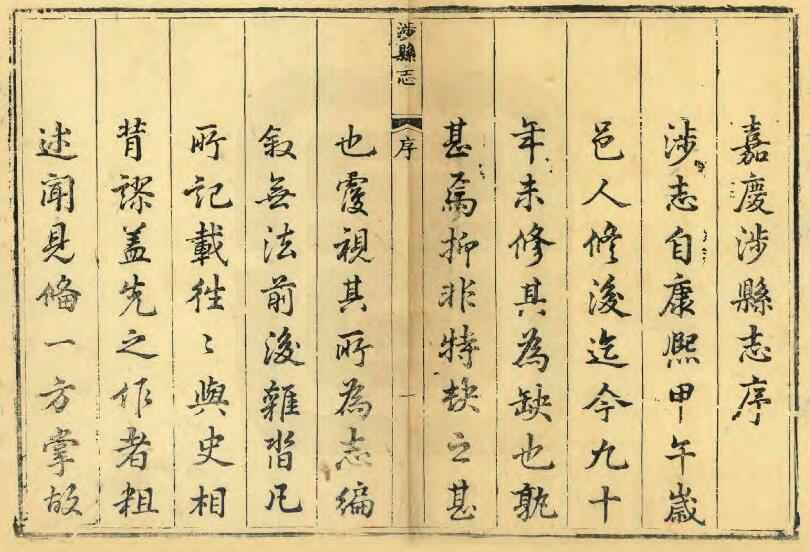 嘉慶涉縣志序
涉志自康熙甲午歲
邑人修後迄今九十
年未修其為缺也孰
甚焉抑非特缺之甚
涉縣志
序
一
也覆視其所為志編
敘無法前後雜沓凡
所記載徃〻與史相
背謬蓋先之作者粗
述聞見備一方掌故